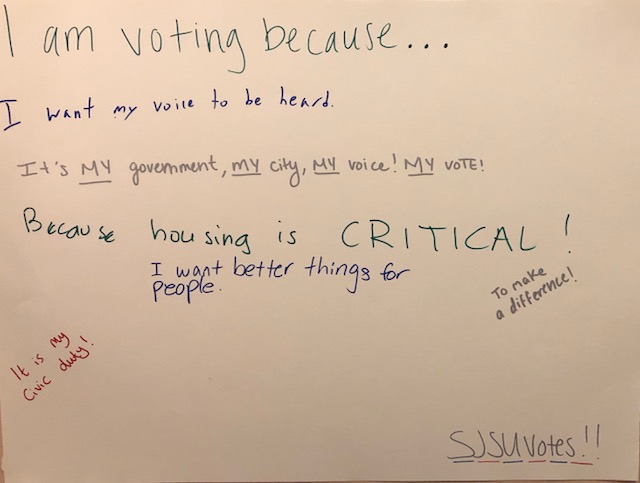 I am voting because...
I want my voice to be heard.
It's MY government, MY city, MY voice! MY VOTE!
Because housing is CRITICAL!
I want better things for
people.
To make
a difference!
It is my
Civic duty!
SJSUVotes!!